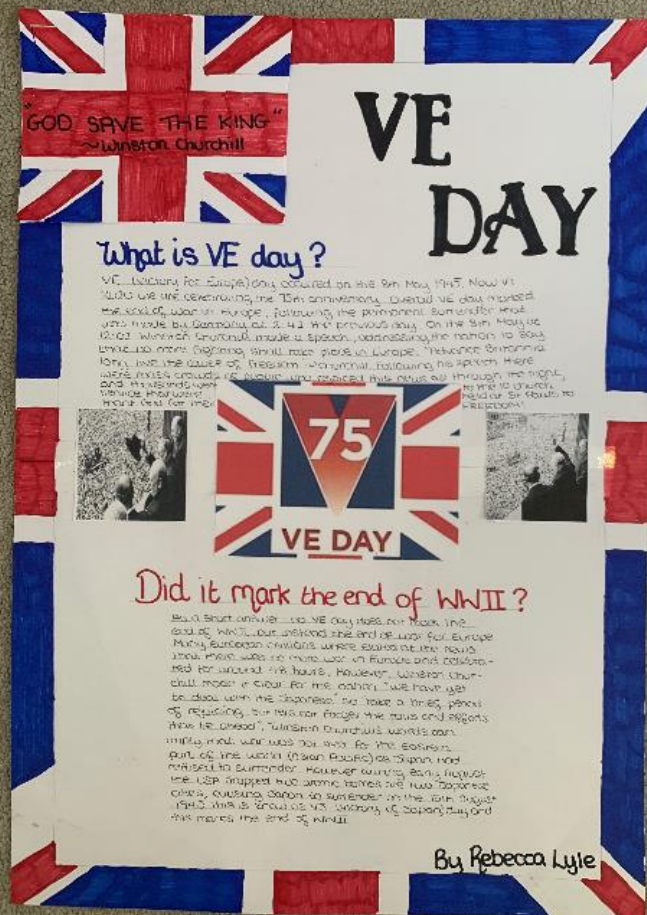 "GOD SAVE THE KING"
~Winston Churchill
VE
DAY
What is VE day?
VE (Victory for Europe) day occured on the 8th May 1945. Now in
we are celebrating the 75th anniversary. Overall VE day marked
the end of war in Europe, following the permanent surrender that
was made by Germany at 2.41 the previous day. On the 8th May at
Winston Churchill made a speech, addressing the nation to say
that no more fighting shall take place in Europe. "Advance Britannia
long live the cause of freedom" Following his speech there
were mass crowds of people who rejoiced this news all through the night,
and thousands went to the church
service that were held at St Pauls to
thank God for their FREEDOM
75
VE DAY
Did it mark the end of WWII?
As a short answer no VE day does not mark the
end of WWII, but instead the end of war for Europe
Many European civilians where elated at the news
that there was no more war in Europe and celebra-
ted for around 48 hours. However, Winston Chur-
chill made it clear for the nation, "we have yet
to deal with the Japanese" so take a brief period
of rejoicing, but let's not forget the toils and efforts
that lie ahead". Winston Churchill's words can
imply that war was not over for the Eastern
part of the world (Asian Pacific) as Japan had
refused to surrender. However during early August
the dropped two atomic bombs on two Japanese
cities, causing Japan to surrender on the 15th August
1945, this is know as VJ (Victory of Japan) day and
this marks the end of WWII
By Rebecca Lyle